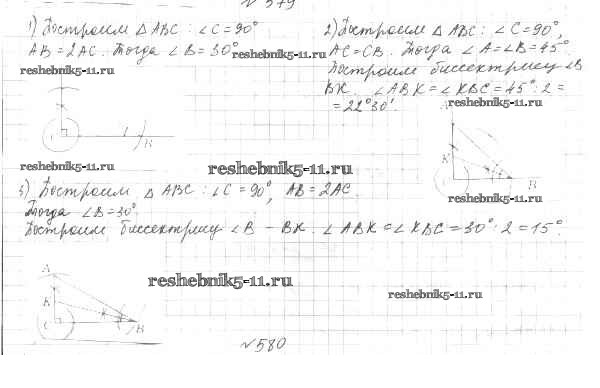 № 579
1) Построим △ ABC : ∠C = 90°
AB = 2AC. Тогда ∠B = 30°
reshebnik5-11.ru
2) Построим △ ABC : ∠C = 90°,
AC = CB. Тогда ∠A = ∠B = 45°
Построим биссектрису ∠B
BK. ∠ABK = ∠KBC = 45° : 2 =
= 22°30'.
C
B
reshebnik5-11.ru
reshebnik5-11.ru
A
K
C
B
reshebnik5-11.ru
3) Построим △ ABC : ∠C = 90°, AB = 2AC.
Тогда ∠B = 30°.
Построим биссектрису ∠B – BK. ∠ABK = ∠KBC = 30° : 2 = 15°.
A
K
C
B
reshebnik5-11.ru
reshebnik5-11.ru
№ 580